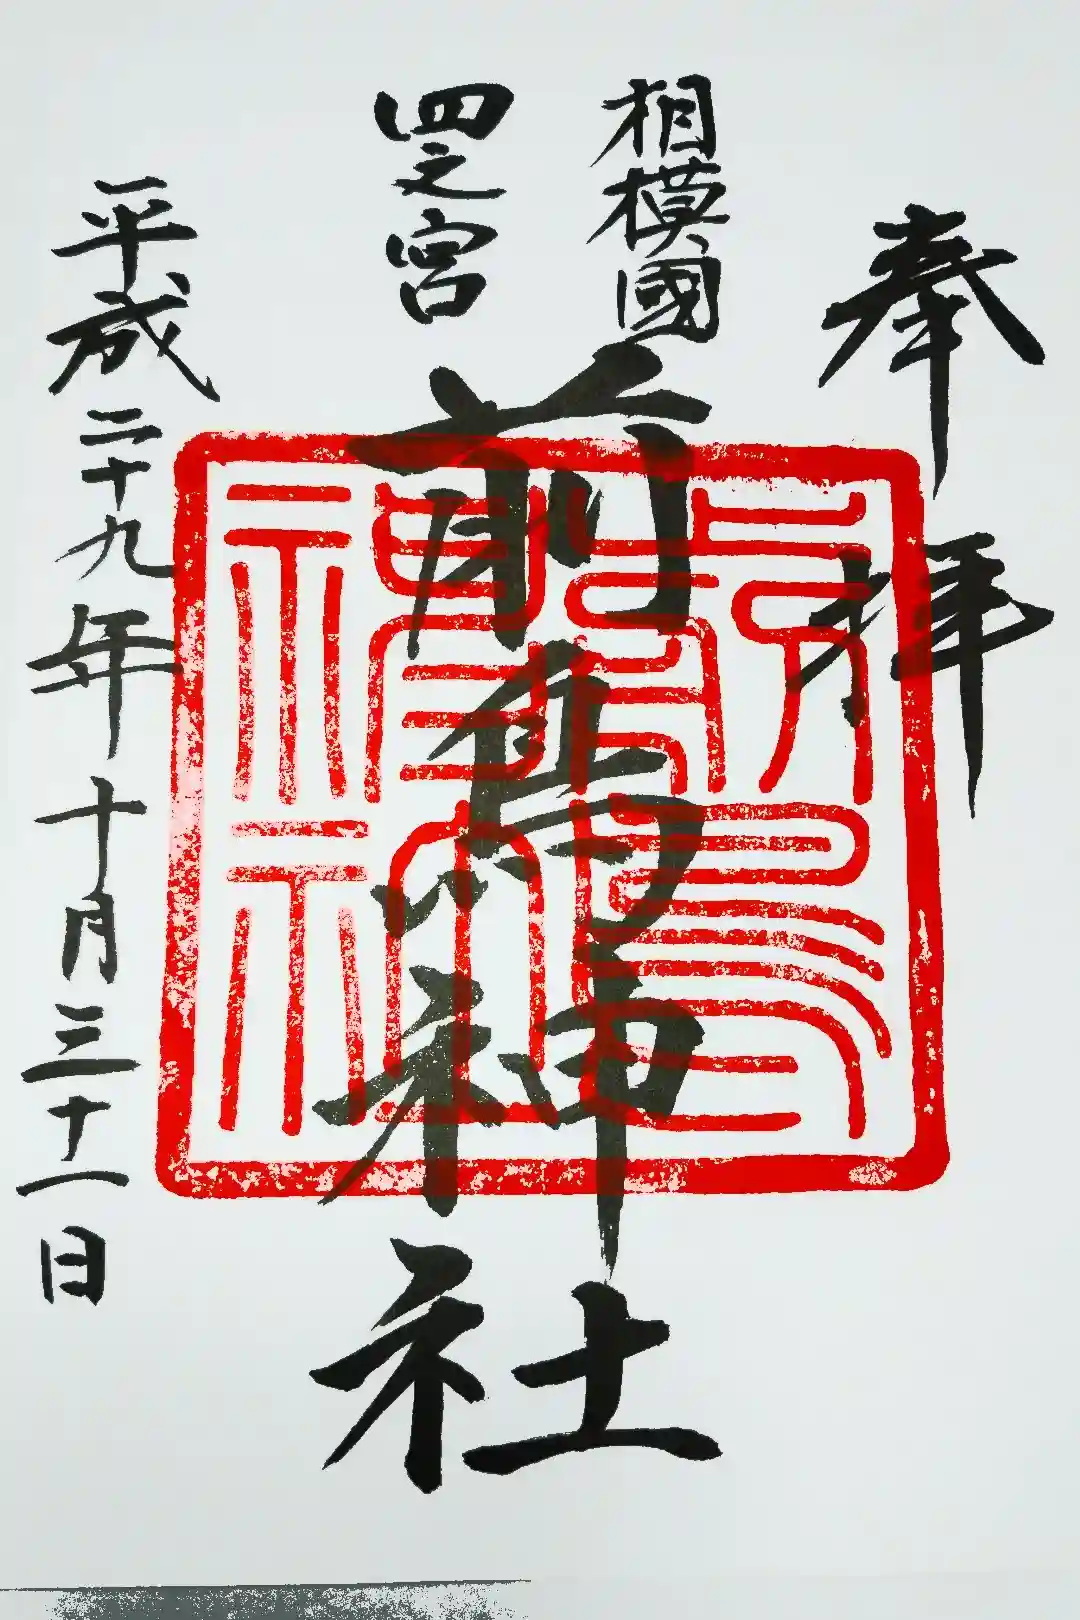 奉拝
相模國
四之宮
前鳥神社
平成二十九年十月三十一日
前鳥神社